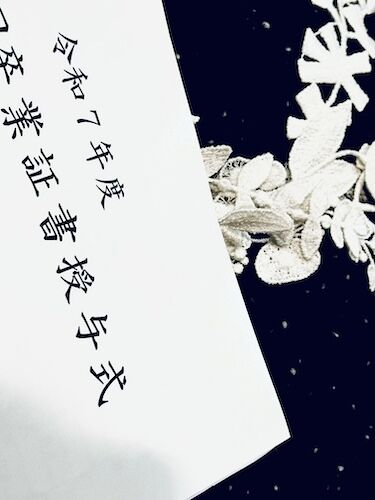 令和7年度
卒業証書授与式